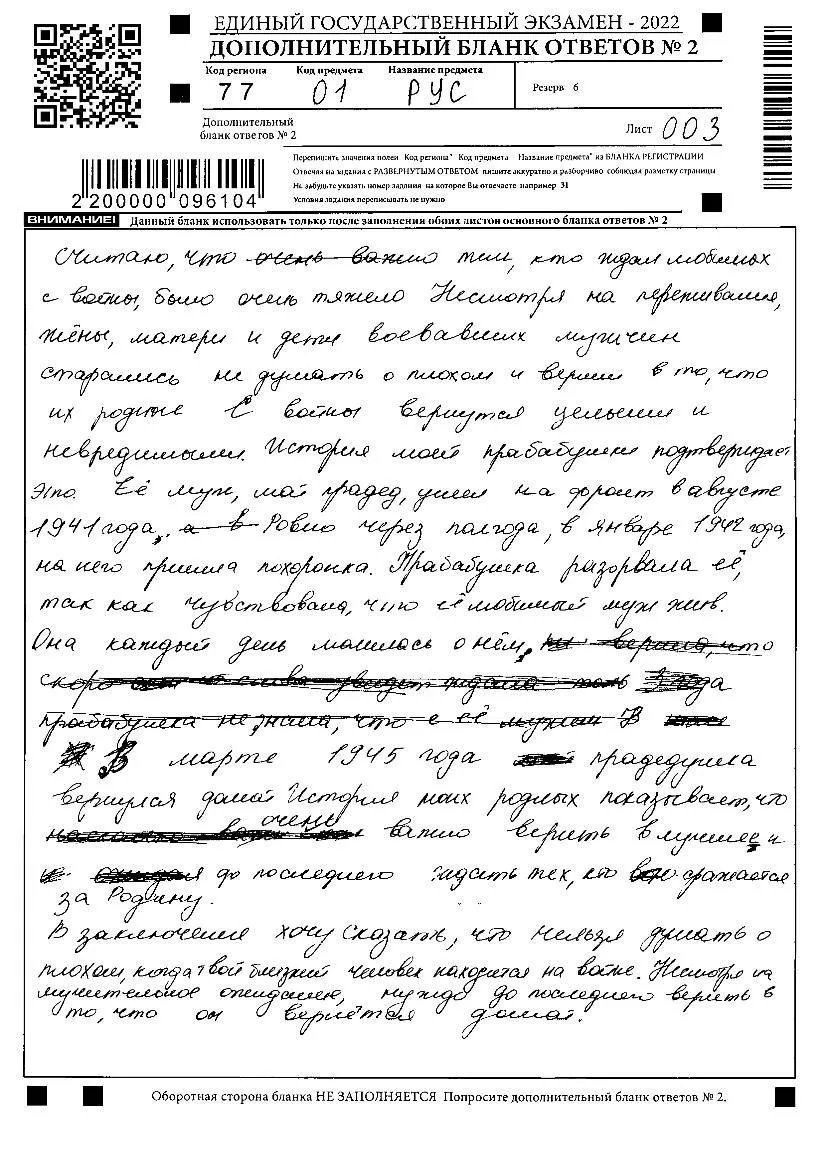 ЕДИНЫЙ ГОСУДАРСТВЕННЫЙ ЭКЗАМЕН - 2022
ДОПОЛНИТЕЛЬНЫЙ БЛАНК ОТВЕТОВ № 2
Код региона Код предмета Название предмета
77 01 РУС Резерв 6
Дополнительный
бланк ответов № 2
Лист 003
Перепишите значения полей Код региона" Код предмета Название предмета" из БЛАНКА РЕГИСТРАЦИИ
Отвечая на задания с РАЗВЕРНУТЫМ ОТВЕТОМ пишите аккуратно и разборчиво соблюдая разметку страницы
Не забудьте указать номер задания на которое Вы отвечаете например 31
Условия задания переписывать не нужно
2 200000 096104
ВНИМАНИЕ! Данный бланк использовать только после заполнения обоих листов основного бланка ответов № 2
Считаю, что очень важно тем, кто ждал любимых
с войны, было очень тяжело Несмотря на переживания,
жёны, матери и дети воевавших мужчин
старались не думать о плохом и верили в то, что
их родные с войны вернутся целыми и
невредимыми. История моей прабабушки подтверждает
это. Её муж, мой прадед, ушел на фронт в августе
1941 года. а в Ровно через полгода, в январе 1942 года,
на него пришла похоронка. Прабабушка разорвала её,
так как чувствовала, что её любимый муж жив.
Она каждый день молилась о нём, верила, что
скоро снова увидит ждала года
прабабушка не знала, что с её мужем В
В марте 1945 года прадедушка
вернулся домой История моих родных показывает, что
очень
важно верить в лучшее и
и до последнего ждать тех, кто сражается
за Родину.
В заключение хочу сказать, что нельзя думать о
плохом, когда твой близкий человек находится на войне. Несмотря на
мучительное ожидание, нужно до последнего верить в
то, что он вернётся домой.
Оборотная сторона бланка НЕ ЗАПОЛНЯЕТСЯ Попросите дополнительный бланк ответов № 2.